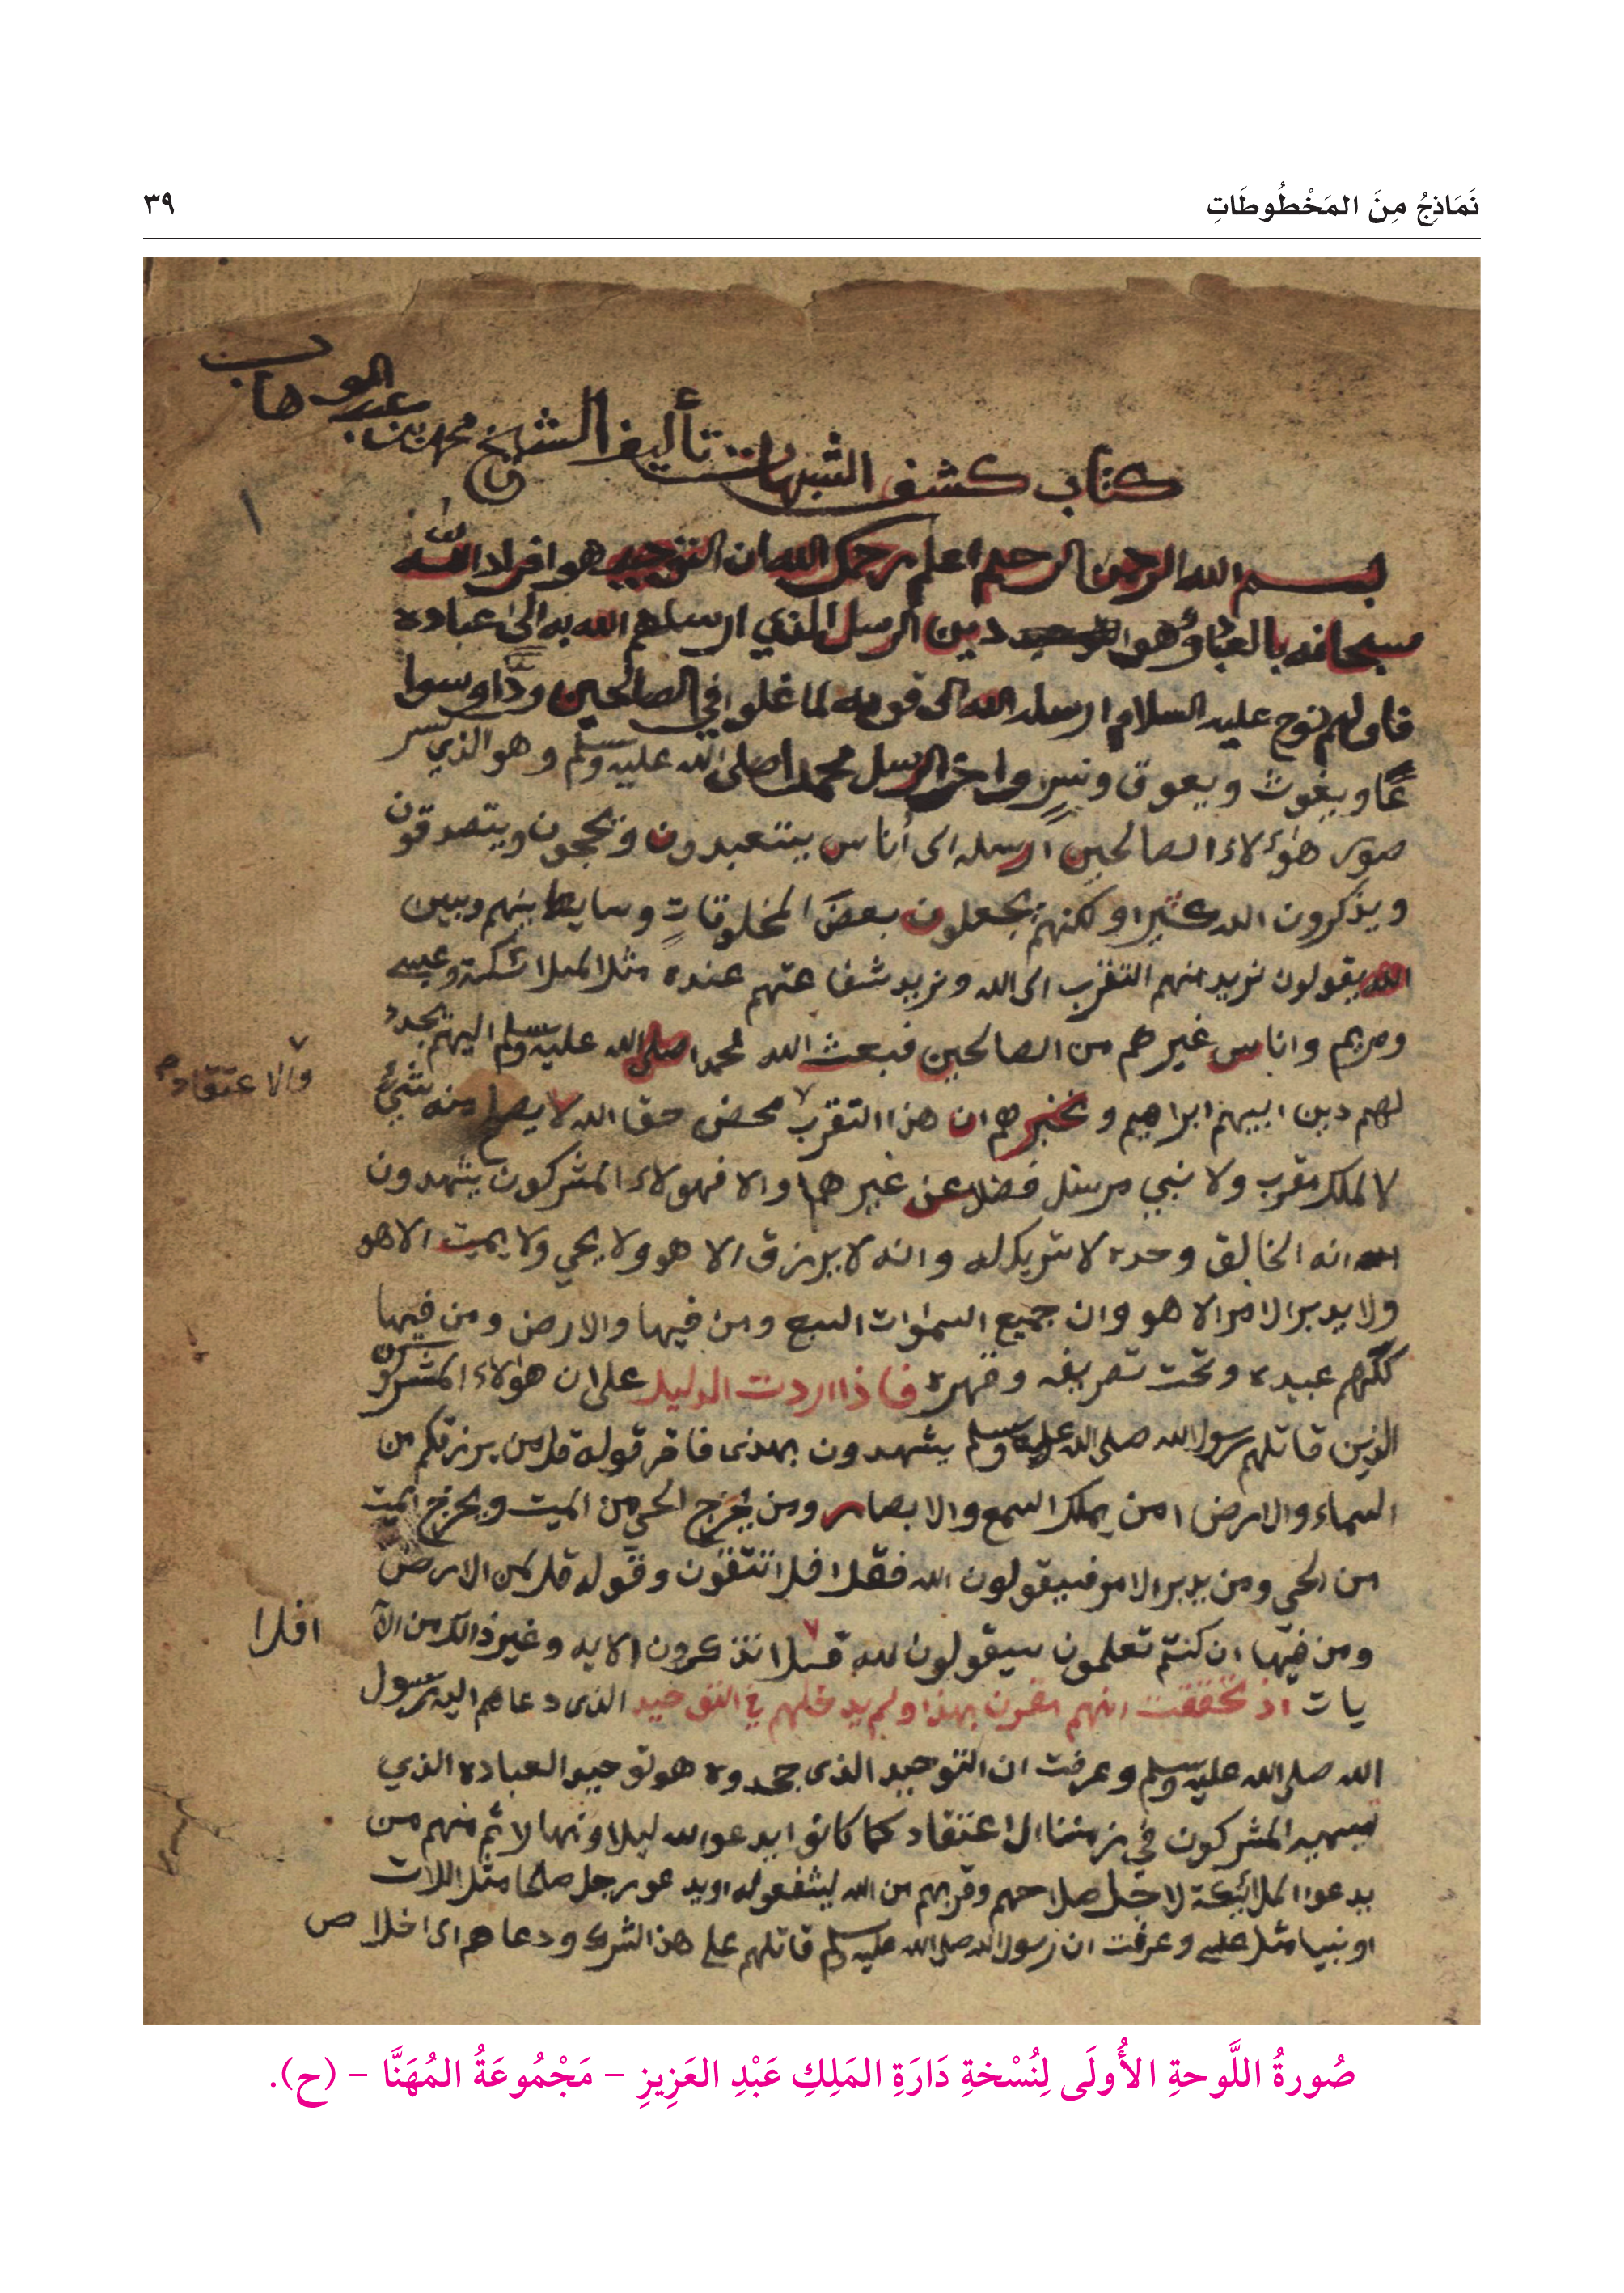 نَمَاذِجُ مِنَ المَخْطُوطَاتِ
٣٩
كتاب كشف الشبهات تأليف الشيخ محمد بن عبد الوهاب
١
بسم الله الرحمن الرحيم اعلم رحمك الله ان التوحيد هو افراد الله
سبحانه بالعباده وهو دين الرسل الذي ارسلهم الله به الى عباده
فاولهم نوح عليه السلام ارسله الله الى قومه لما غلوا في الصالحين ودًّا وسوا
عًا ويغوث ويعوق ونسرٍ واخر الرسل محمدا صلى الله عليه وسلم وهو الذي كسر
صور هؤلاء الصالحين ارسله الى أناس يتعبدون ويحجون ويتصدقون
ويذكرون الله كثيرا ولكنهم يجعلون بعضَ المخلوقاتِ وسايط بينهم وبين
الله يقولون نريد منهم التقرب الى الله ونريد شفاعتهم عنده مثل الملائكة وعيسى
ومريم واناس غيرهم من الصالحين فبعث الله محمدا صلى الله عليه وسلم اليهم يجدد
لهم دين ابيهم ابراهيم ويخبرهم ان هذا التقرب محض حق الله لا يصلح منه شيء
والاعتقاد
لا لملك مقرب ولا نبي مرسل فضلا عن غيرهما والا فهولاء المشركون يشهدون
انه الخالق وحده لا شريك له وانه لا يرزق الا هو ولا يحي ولا يميت الا هو
ولا يدبر الامر الا هو وان جميع السموات السبع ومن فيها والارض ومن فيها
كلهم عبيده وتحت تصريفه وقهره فاذا اردت الدليل على ان هؤلاء المشركين
الذين قاتلهم رسول الله صلى الله عليه وسلم يشهدون بهذى فاقر قوله قل من يرزقكم من
السماء والارض امن يملك السمع والابصار ومن يخرج الحي من الميت ويخرج الميت
من الحي ومن يدبر الامر فسيقولون الله فقل افلا تتقون وقوله قل لمن الارض
ومن فيها ان كنتم تعلمون سيقولون لله قل تذكرون الايه وغير ذالك من الآ
افلا
يات اذ تحققت انهم مقرون بهذا ولم يدخلهم في التوحيد الذى دعاهم اليه رسول
الله صلى الله عليه وسلم وعرفت ان التوحيد الذى جحدوه هو توحيد العباده الذي
يسميه المشركون في زمننا الاعتقاد كما كانوا يدعوا الله ليلا ونهارا ثم منهم من
يدعوا الملائكة لاجل صلاحهم وقربهم من الله ليشفعوله او يدعو رجل صالحا مثل اللات
او نبيا مثل عيسى وعرفت ان رسول الله صلى الله عليه وسلم قاتلهم على هذا الشرك ودعاهم الى اخلاص
صُورةُ اللَّوحةِ الأُولَى لِنُسْخةِ دَارَةِ المَلِكِ عَبْدِ العَزِيزِ – مَجْمُوعَةُ المُهَنَّا – (ح).